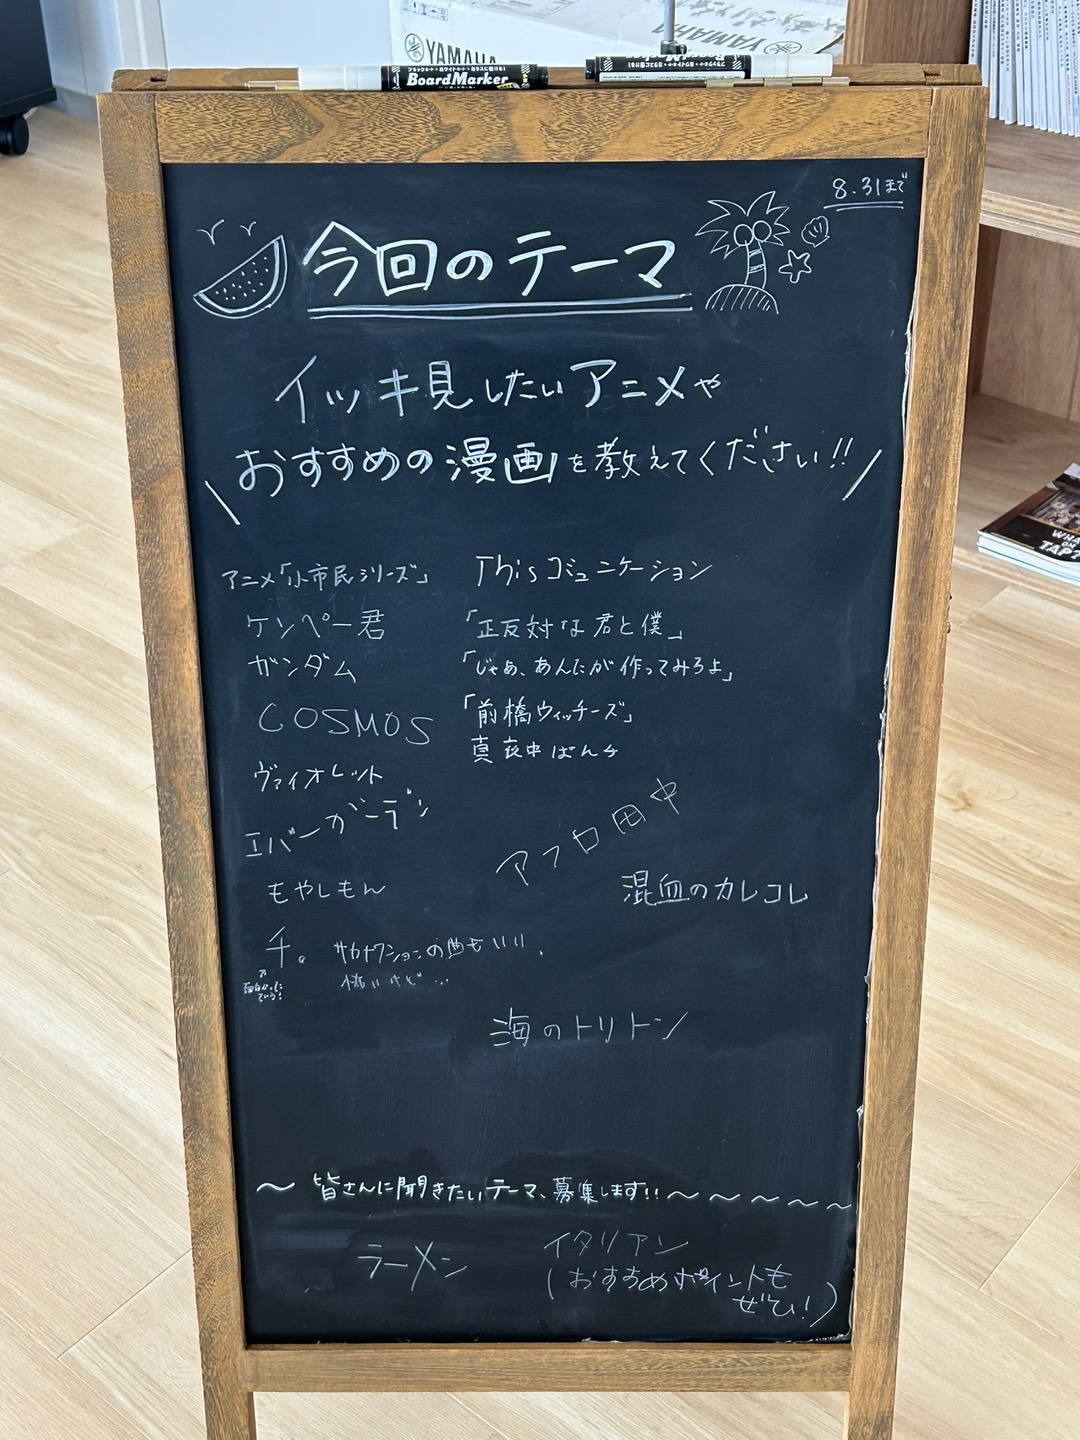 YAMAHA
YAMAHA
BoardMarker
8.31まで
今回のテーマ
イッキ見したいアニメや
おすすめの漫画を教えてください!!
アニメ「小市民シリーズ」
ケンペー君
ガンダム
COSMOS
ヴァイオレット
エバーガーデン
もやしもん
チ。
サカナクションの曲もいい。
怖いけど…
Thisコミュニケーション
「正反対な君と僕」
「じゃあ、あんたが作ってみろよ」
「前橋ウィッチーズ」
真夜中ぱんチ
アフロ田中
混血のカレコレ
海のトリトン
〜 皆さんに聞きたいテーマ、募集します!! 〜 〜 〜 〜 〜
ラーメン
イタリアン
(おすすめポイントも
ぜひ!)
WHAT
ON
TAP?